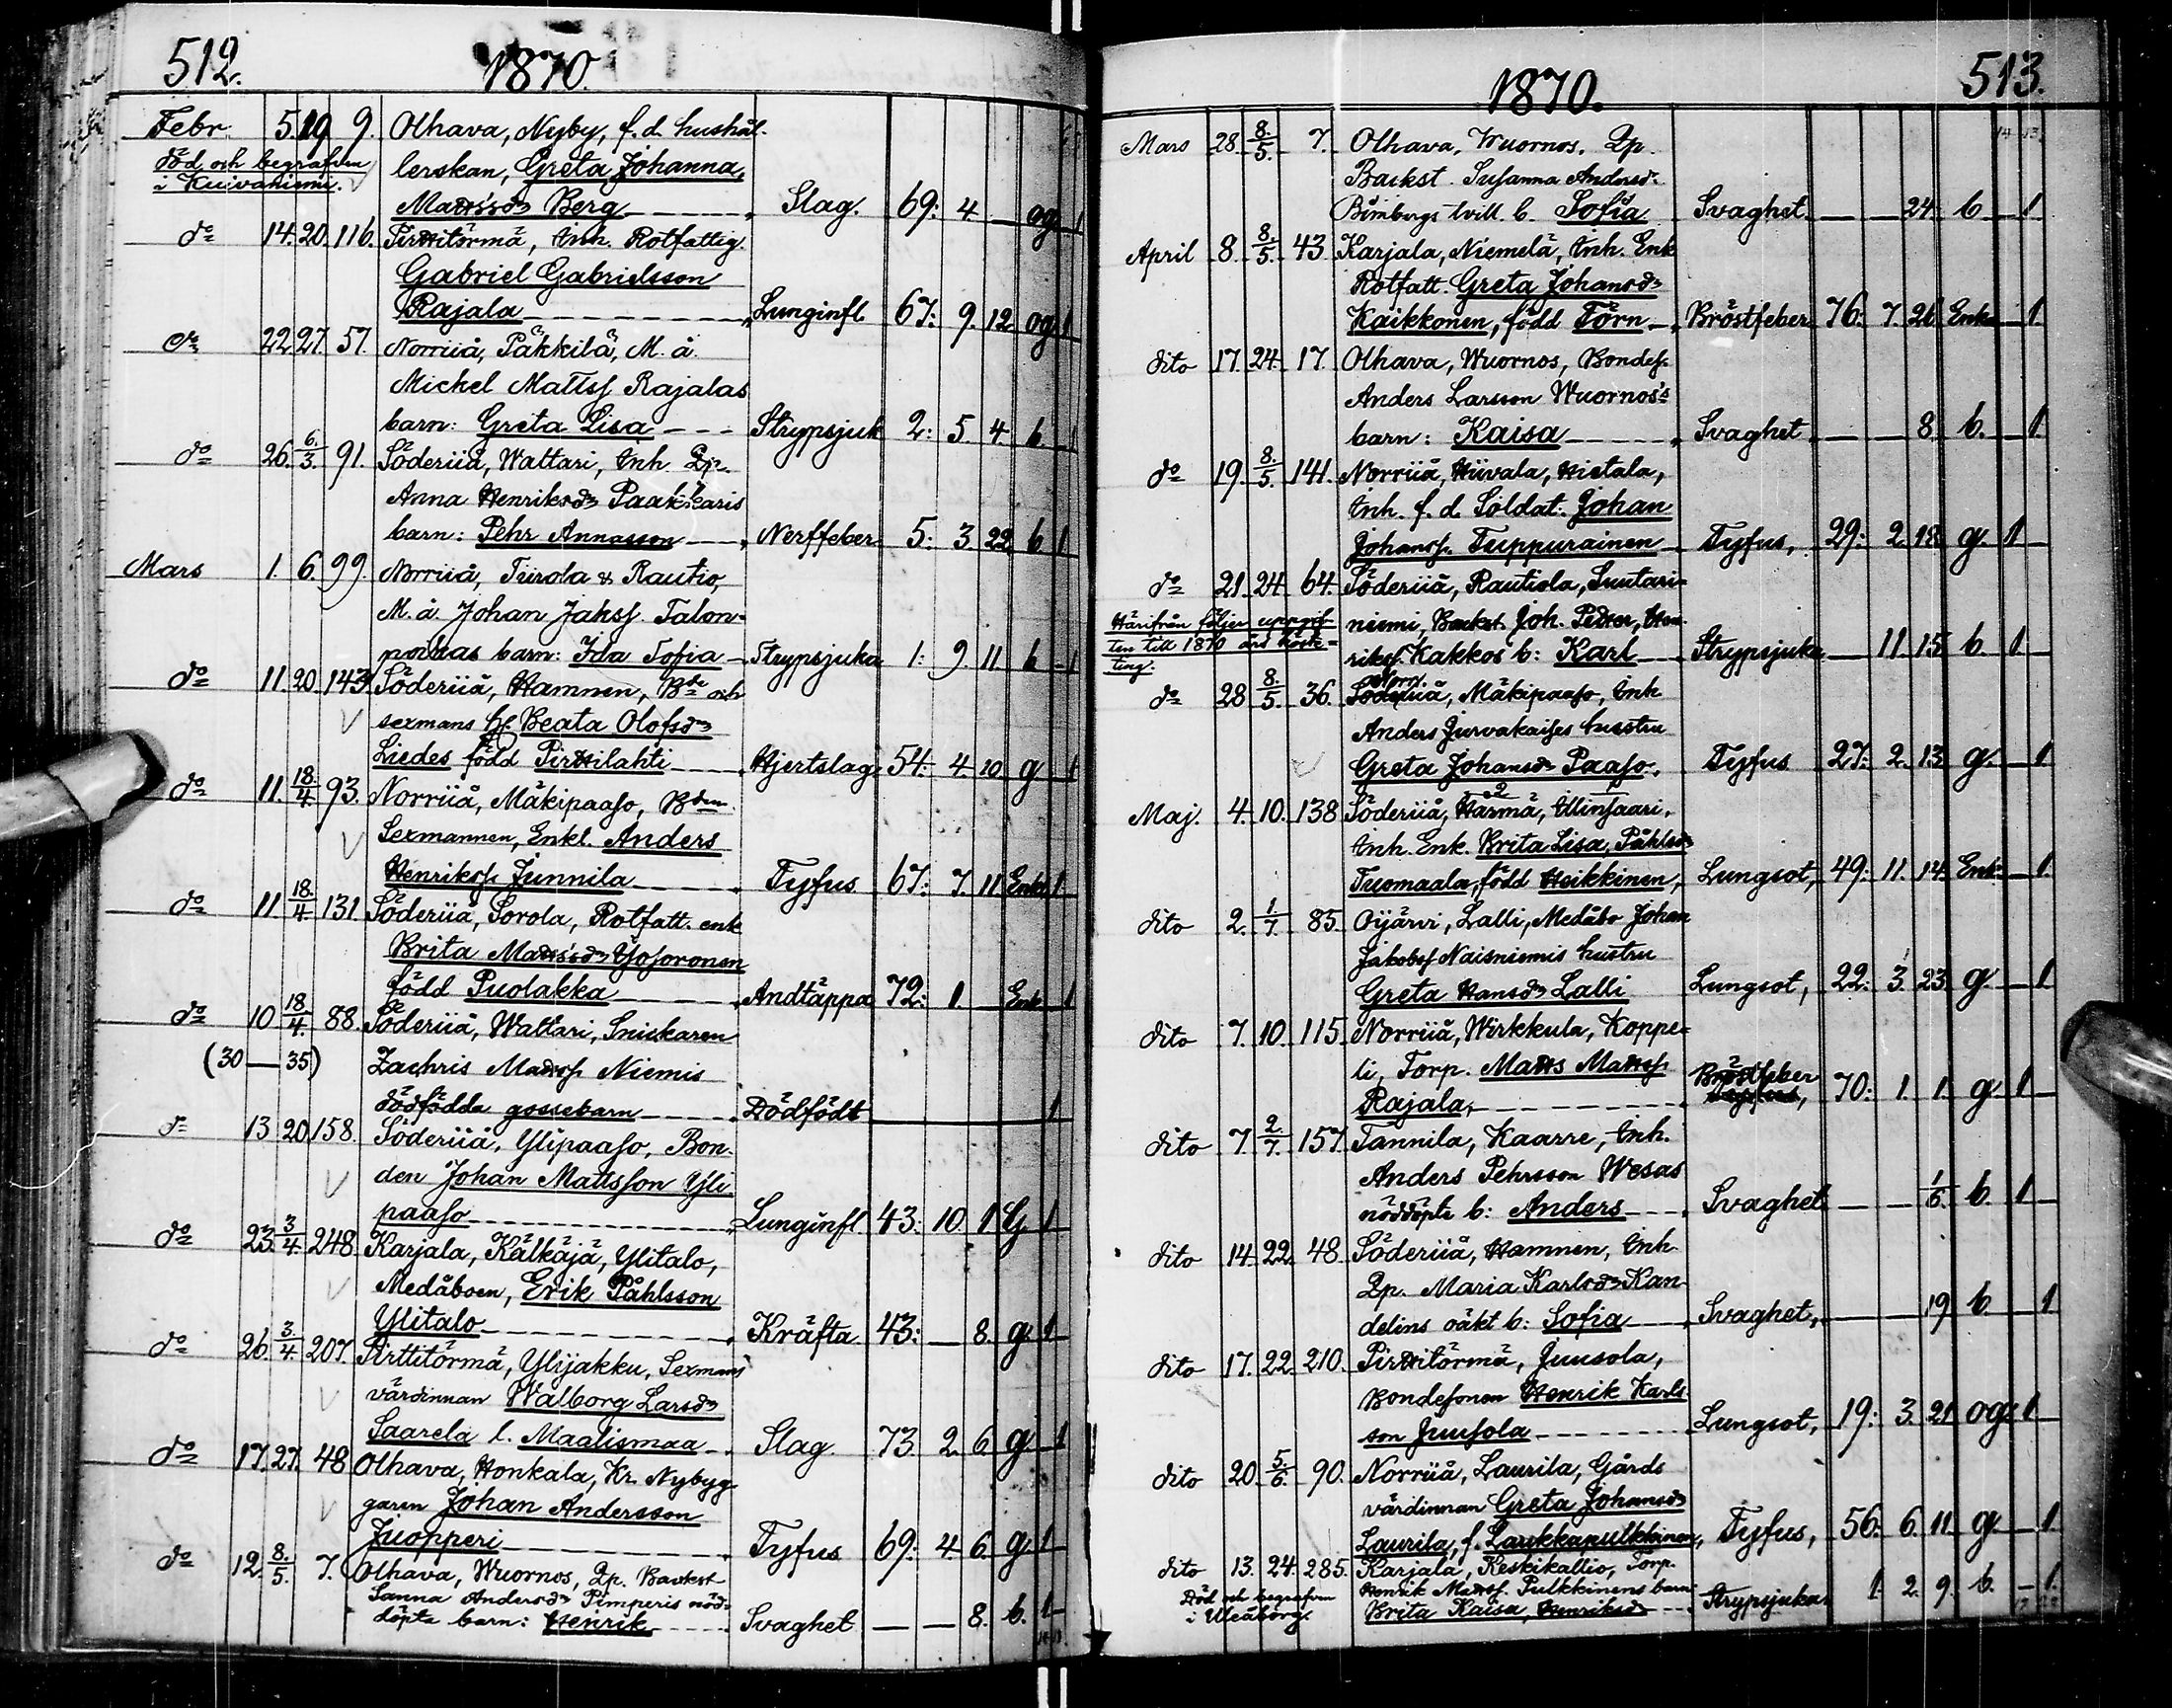 512.
1870.
Febr. 5. 19 9. Olhava, Nyby, f. d. hushål-
Död och begrafven lerskan, Greta Johanna,
i Kuivaniemi. Mattsd:r Berg Slag. 69: 4 — og 1
d:o 14. 20. 116. Pirttitörmä, Inh. Rotfattig.
Gabriel Gabrielsson
Rajala Lunginfl. 67: 9. 12 og 1
d:o 22 27. 57. Norriiå, Päkkilä, M. å.
Mickel Mattss Rajalas
barn: Greta Lisa Strypsjuk 2: 5. 4 b 1
d:o 26. 6./3. 91. Söderiiå, Wattari, Inh. Qp.
Anna Henriksd:r Paakkaris
barn: Pehr Annasson Nerffeber 5: 3. 22. b 1
Mars 1. 6. 99. Norriiå, Tiirola & Rautio,
M. å. Johan Jakss. Talon-
poikas barn: Ida Sofia Strypsjuka 1: 9. 11 b 1
d:o 11. 20. 143. Söderiiå, Hamnen, B:de och
sexmans h. Beata Olofsd:r
Liedes född Pirttilahti Hjertslag 54: 4. 20 g 1
d:o 11. 18./4 93. Norriiå, Mäkipaaso, B:den
Sexmannen, Enkl. Anders
Henrikss. Junnila Tyfus 67: 7. 11 Enkl 1
d:o 11 18./4 131. Söderiiå, Sorola, Rotfatt. enk
Brita Mattsd:r Yosoronen
född Puolakka Andtäppa 72: 1. Enk 1
d:o 10 18./4. 88. Söderiiå, Wattari, Snickaren
(30—35) Zachris Mattss. Niemis
dödfödda gossebarn Dödfödt 1
d:o 13 20 158. Söderiiå, Ylipaaso, Bon-
den Johan Mattsson Yli-
paaso Lunginfl. 43: 10. 1 G. 1
d:o 23. 3/4 248 Karjala, Kälkäjä, Ylitalo,
Medåboen, Erik Påhlsson
Ylitalo Kräfta 43: — 8. g. 1
d:o 26. 3./4 207. Pirttitörmä, Ylijakku, Sexmans
värdinnan Walborg Larsd:r
Saarela l. Maalismaa Slag. 73. 2. 6 g. 1
d:o 17. 27. 48 Olhava, Honkala, Kr. Nybyg-
garen Johan Andersson
Juopperi Tyfus 69: 4. 6. g. 1
d:o 12. 8./5. 7. Olhava, Wuornos, Qp. Backst
Sanna Andersd:r Pimperis nöd-
döpta barn: Henrik Svaghet — — 8. b. 1
1870.
513.
Mars 28. 8./5. 7. Olhava, Wuornos. Qp.
Backst. Susanna Andersd:r
Bimbergs tvill. b. Sofia Svaghet — — 24. b 1
April 8. 8./5. 43 Karjala, Niemelä, Inh. Enk
Rotfatt. Greta Johansd:r
Kaikkonen, född Törn Bröstfeber 76: 7. 26 Enka 1.
dito 17. 24. 17. Olhava, Wuornos, Bondes.
Anders Larsson Wuornos's
barn: Kaisa Svaghet — — 8. b. 1.
d:o 19. 8./5. 141. Norriiå, Hiivala, Hietala,
Inh. f. d. Soldat. Johan
Johanss. Tuppurainen Tyfus, 29: 2. 18. g. 1
d:o 21 24 64. Söderiiå, Rautiola, Suutari-
Härifrån följer uppgif- niemi, Backst. Joh. Petter, Hen-
ten till 1870 års röste- rikss. Kakkos b: Karl Strypsjuka — 11. 15 b. 1
ting.
d:o 28 8./5. 36. Norr. Söderiiå, Mäkipaaso, Inh
Anders Jurvakaises hustru
Greta Johansd:r Paaso. Tyfus 27: 2. 13 g. 1
Maj. 4. 10. 138 Söderiiå, Harmä, Illinsaari,
Inh. Enk. Brita Lisa, Påhlsd:r
Tuomaala, född Heikkinen, Lungsot, 49: 11. 14 Enk: 1.
dito 2. 1/7. 85. Oijärvi, Lalli, Medåbo Johan
Jakobss Naisniemis hustru
Greta Hansd:r Lalli Lungsot, 22: 3. 23 g. 1
dito 7. 10. 115 Norriiå, Wirkkula, Koppe-
li, Torp. Matts Mattss.
Rajala, Bröstfeber 70: 1. 1. g. 1
dito 7 2./7. 157. Tannila, Kaarre, Inh.
Anders Pehrsson Wesas
nöddöpta b: Anders Svaghet — — 1/6. b. 1
dito 14. 22. 48. Söderiiå, Hamnen, Inh
Qp. Maria Karlsd:r Kan-
delins oäkt b: Sofia Svaghet, 19. b. 1
dito 17. 22. 210. Pirttitörmä, Juusola,
Bondesonen Henrik Karls-
son Juusola Lungsot, 19: 3. 21 ogz 1
dito 20. 5./6. 90. Norriiå, Laurila, Gårds
värdinnan Greta Johansd:r
Laurila, f. Laukkapulkkinen, Tyfus, 56: 6. 11. g. 1.
dito 13. 24. 285. Karjala, Keskikallio, Torp.
Död och begrafven Henrik Mattss. Pulkkinens barn:
i Uleåborg. Brita Kaisa, Henriksd:r Strypsjuka 1. 2. 9. b. 1.